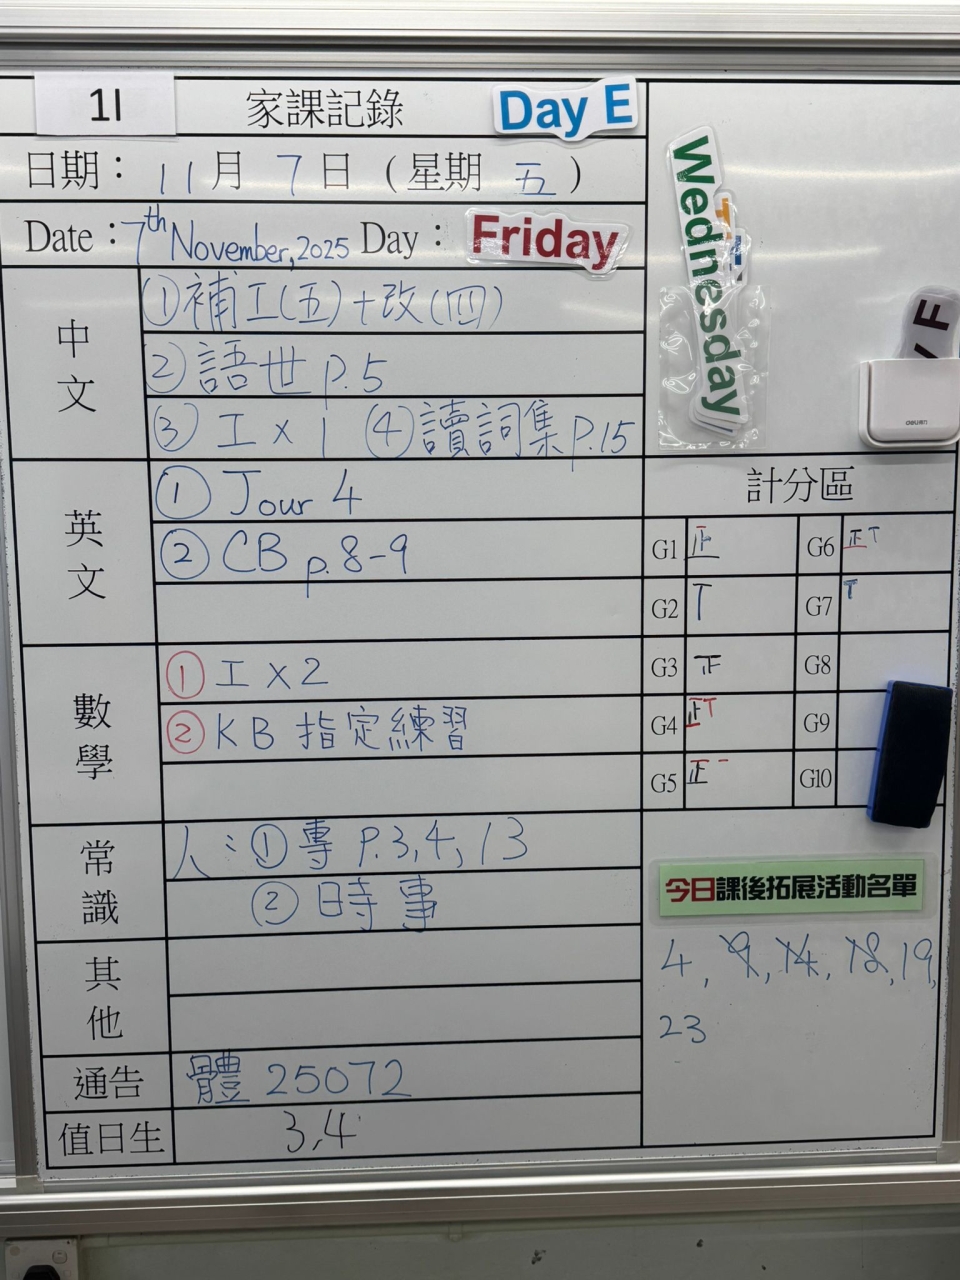 1I 家課記錄 Day E
日期： 11 月 7 日 ( 星期 五 )
Date : 7th November, 2025 Day : Friday
Wednesday
F
deli
中文
① 補工(五)+改(四)
② 語世 p.5
③ 工 x 1 ④ 讀詞集 p.15
英文
① Jour 4
② CB p.8-9
數學
① 工 x 2
② KB 指定練習
常識
人：① 專 P.3, 4, 13
② 時事
其他
通告 體 25072
值日生 3, 4
計分區
G1 正 G6 正T
G2 T G7 T
G3 正 G8
G4 正T G9
G5 正一 G10
今日課後拓展活動名單
4, 9, 14, 18, 19,
23